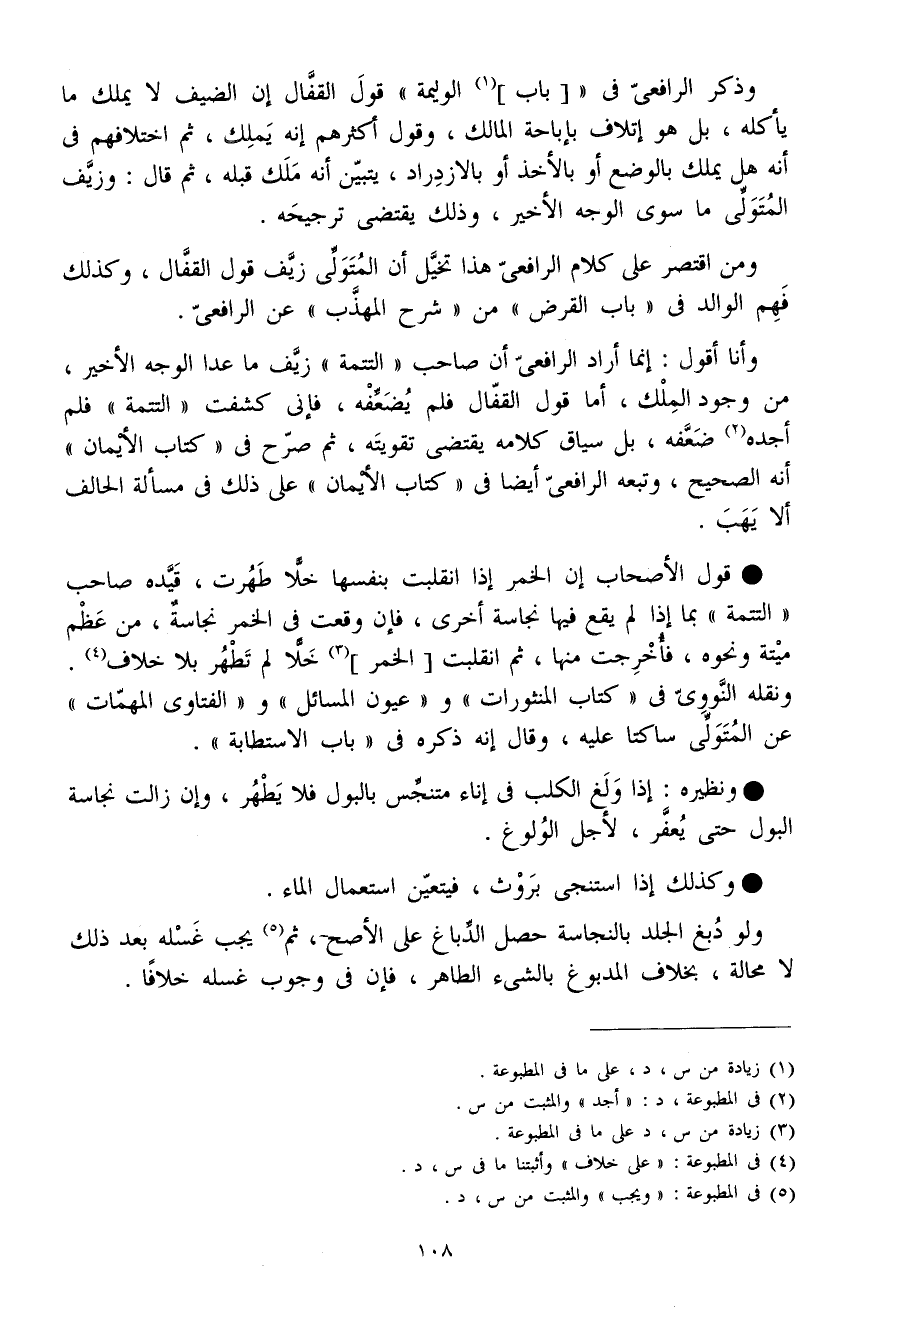 وذكر الرافعىّ فى « [ باب ](١) الوليمة » قولَ القفَّال إن الضيف لا يملك ما
يأكله ، بل هو إتلاف بإباحة المالك ، وقول أكثرهم إنه يَملِك ، ثم اختلافهم فى
أنه هل يملك بالوضع أو بالأخذ أو بالازدِراد ، يتبيّن أنه مَلَك قبله ، ثم قال : وزيَّف
المُتَوَلِّى ما سوى الوجه الأخير ، وذلك يقتضى ترجيحَه .
ومن اقتصر على كلام الرافعىّ هذا تخيَّل أن المُتَوَلِّى زيَّف قول القفَّال ، وكذلك
فَهِم الوالد فى « باب القرض » من « شرح المهذَّب » عن الرافعىّ .
وأنا أقول : إنما أراد الرافعىّ أن صاحب « التتمة » زيَّف ما عدا الوجه الأخير ،
من وجود المِلْك ، أما قول القفّال فلم يُضَعِّفْه ، فإنى كشفت « التتمة » فلم
أجده(٢) ضَعَّفه ، بل سياق كلامه يقتضى تقويتَه ، ثم صرّح فى « كتاب الأيْمان »
أنه الصحيح ، وتبعه الرافعىّ أيضا فى « كتاب الأيْمان » على ذلك فى مسألة الحالف
ألا يَهَبَ .
● قول الأصحاب إن الخمر إذا انقلبت بنفسها خلًّا طَهُرت ، قَيَّده صاحب
« التتمة » بما إذا لم يقع فيها نجاسة أخرى ، فإن وقعت فى الخمر نجاسةٌ ، من عَظْم
ميْتة ونحوه ، فأُخْرِجت منها ، ثم انقلبت [ الخمر ](٣) خَلًّا لم تَطْهُر بلا خلاف(٤) .
ونقله النَّووِىّ فى « كتاب المنثورات » و « عيون المسائل » و « الفتاوى المهمّات »
عن المُتَوَلِّى ساكتا عليه ، وقال إنه ذكره فى « باب الاستطابة » .
● ونظيره : إذا وَلَغ الكلب فى إناء متنجِّس بالبول فلا يَطْهُر ، وإن زالت نجاسة
البول حتى يُعفَّر ، لأجل الوُلوغ .
● وكذلك إذا استنجى بَرَوْث ، فيتعيّن استعمال الماء .
ولو دُبغ الجلد بالنجاسة حصل الدِّباغ على الأصح ، ثم(٥) يجب غَسْله بعد ذلك
لا محالة ، بخلاف المدبوغ بالشىء الطاهر ، فإن فى وجوب غسله خلافًا .
(١) زيادة من س ، د ، على ما فى المطبوعة .
(٢) فى المطبوعة ، د : « أجد » والمثبت من س .
(٣) زيادة من س ، د على ما فى المطبوعة .
(٤) فى المطبوعة : « على خلاف » وأثبتنا ما فى س ، د .
(٥) فى المطبوعة : « ويجب » والمثبت من س ، د .
١٠٨